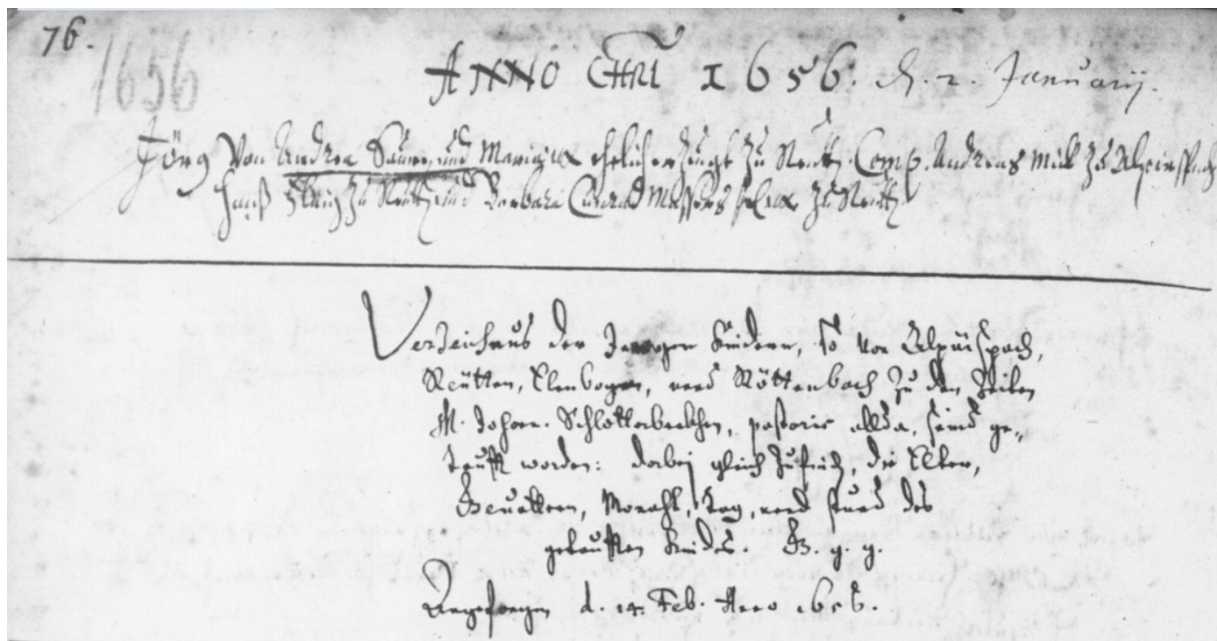 76.
1656
ANNO CHRI 1656. d. 2. Januarij.
Jörg Von Andrea Sauter und Maria ux ehelich erzeugt zu Reutti. Comp. Andreas Mick zu Alpirspach
Hanß zu Reutti und Barbara Conrad ux zu Reutti
Verzeichnus der Jenigen Kindern, so von Alpirspach,
Reütten, Elenbogen, vnd Röttenbach zu den Zeiten
M. Johan. Schlotterbekhen, pastoris allda, seind ge-
taufft worden: darbej gleich zusuchen, die Elter,
Gevattern, Monaht, Tag, vnd stund des
getaufften Kindes. G. g. g.
Angefangen d. 14. Feb. Anno 1656.